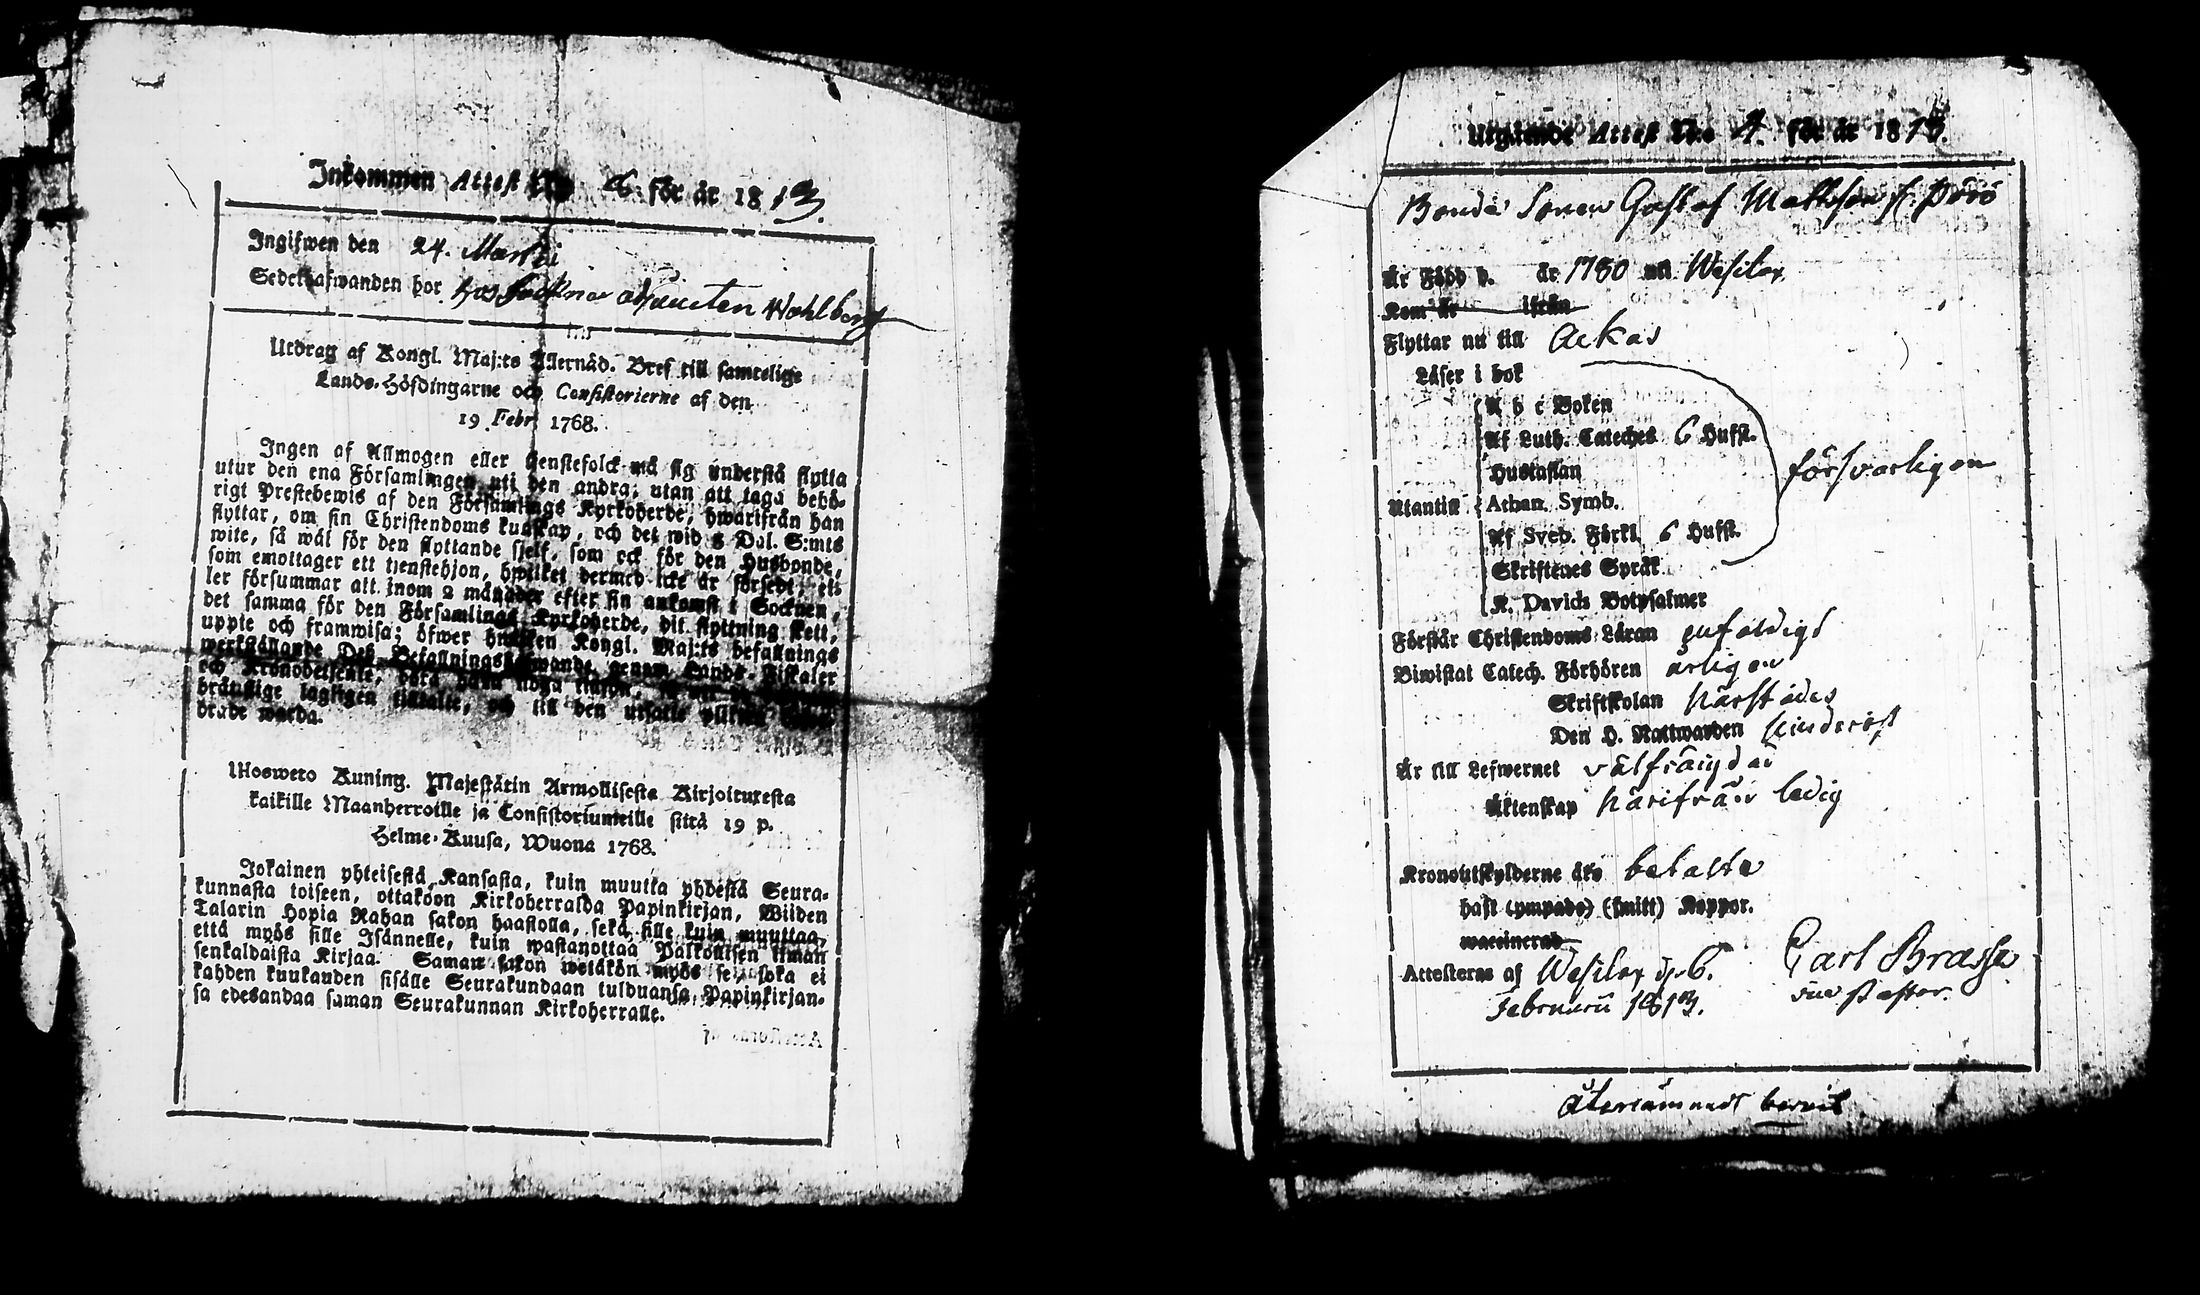 Inkommen Attest N:o 6 för år 1813.
Ingifwen den 24. Martii
Sedelhafwanden bor hos Sockne adjuncten Wahlberg
Utdrag af Kongl. Maj:ts Allernåd. Bref till samtelige
Lands-Höfdingarne och Consistorierne af den
19 Febr. 1768.
Ingen af Allmogen eller tjenstefolck må sig understå flytta
utur den ena Församlingen uti den andra, utan att taga behö-
rigt Prestebewis af den Församlings Kyrkoherde, hwarifrån han
flyttar, om sin Christendoms kunskap, och det wid 5 Dal. S:mts
wite, så wäl för den flyttande sjelf, som ock för den Husbonde,
som emottager ett tjenstehjon, hwilket dermed icke är försedt, el-
ler försummar att inom 2 månader efter sin ankomst i Socknen,
det samma för den Församlings Kyrkoherde, dit flyttning skett,
uppte och framwisa; öfwer hwilken Kongl. Maj:ts befallnings
werkställande Deß Befallningshafwande genom Lands-Fiskaler
och Kronobetjente, böra hafwa noga
bräckelige lagligen tilltalte, och till den utsatte
brade warda.
Uloswero Kuning. Majestätin Armollisesta Kirjoituresta
kaikille Maanherroille ja Consistoriumeille siitä 19 p.
Helme-Kuusa, Wuona 1768.
Jokainen yhteisestä Kansasta, kuin muutta yhdestä Seura-
kunnasta toiseen, ottakoon Kirkoherralda Papinkirjan, Wiiden
Talarin Hopia Rahan sakon haastolla, sekä sille kuin muuttaa,
että myös sille Isännelle, kuin wastanottaa Palkollisen ilman
senkaldaista Kirjaa. Saman sakon wetäkön myös se, joka ei
kahden kuukauden sisälle Seurakundaan tulduansa, Papinkirjan-
sa edesandaa saman Seurakunnan Kirkoherralle.
Utgående Attest N:o 4. för år 1813.
Bonde Sonen Gustaf Mattsson fr.
Är Född d. år 1780 uti Wesilax
Kom år ifrån
Flyttar nu till Ackas
Läser i bok
A b c Boken
Af Luth. Cateches 6 Hufst.
Hustaflan
Utantill Athan. Symb.
försvarligen
Af Sveb. Förkl. 6 Hufst.
Skriftenes Språk
K. Davids Botpsalmer
Förstår Christendoms Läran enfaldigt
Biwistat Catech. Förhören årligen
Skriftskolan härstädes
Den H. Nattwarden
Är till Lefwernet välfrängdad
Äktenskap härifrån ledig
Kronoutskylderne äro betalte
haft (ympade) (smitt) Koppor.
waccinerad
Attesteras af Wesilax d. 6. Carl Brasse
Februarii 1813. vice Pastor.
Återsämnadt bevis